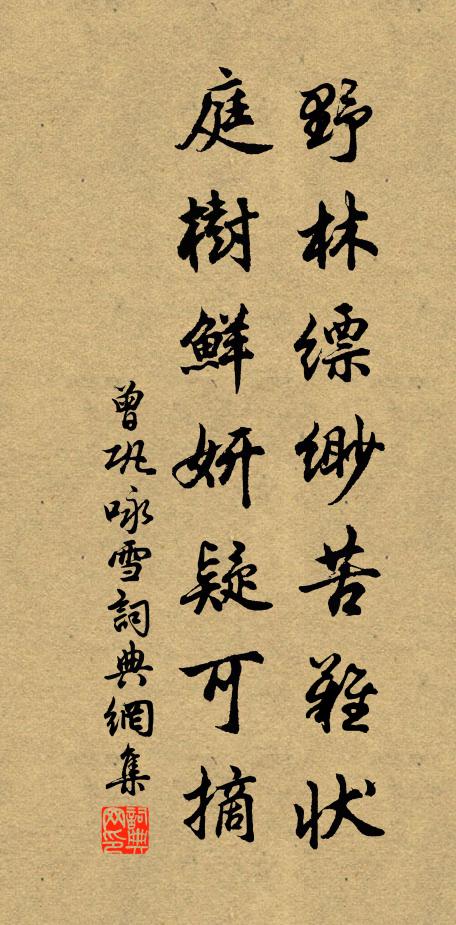 野林縹緲苦難状
庭樹鮮妍疑可摘
曾巩咏雪詞典網集
詞典網印